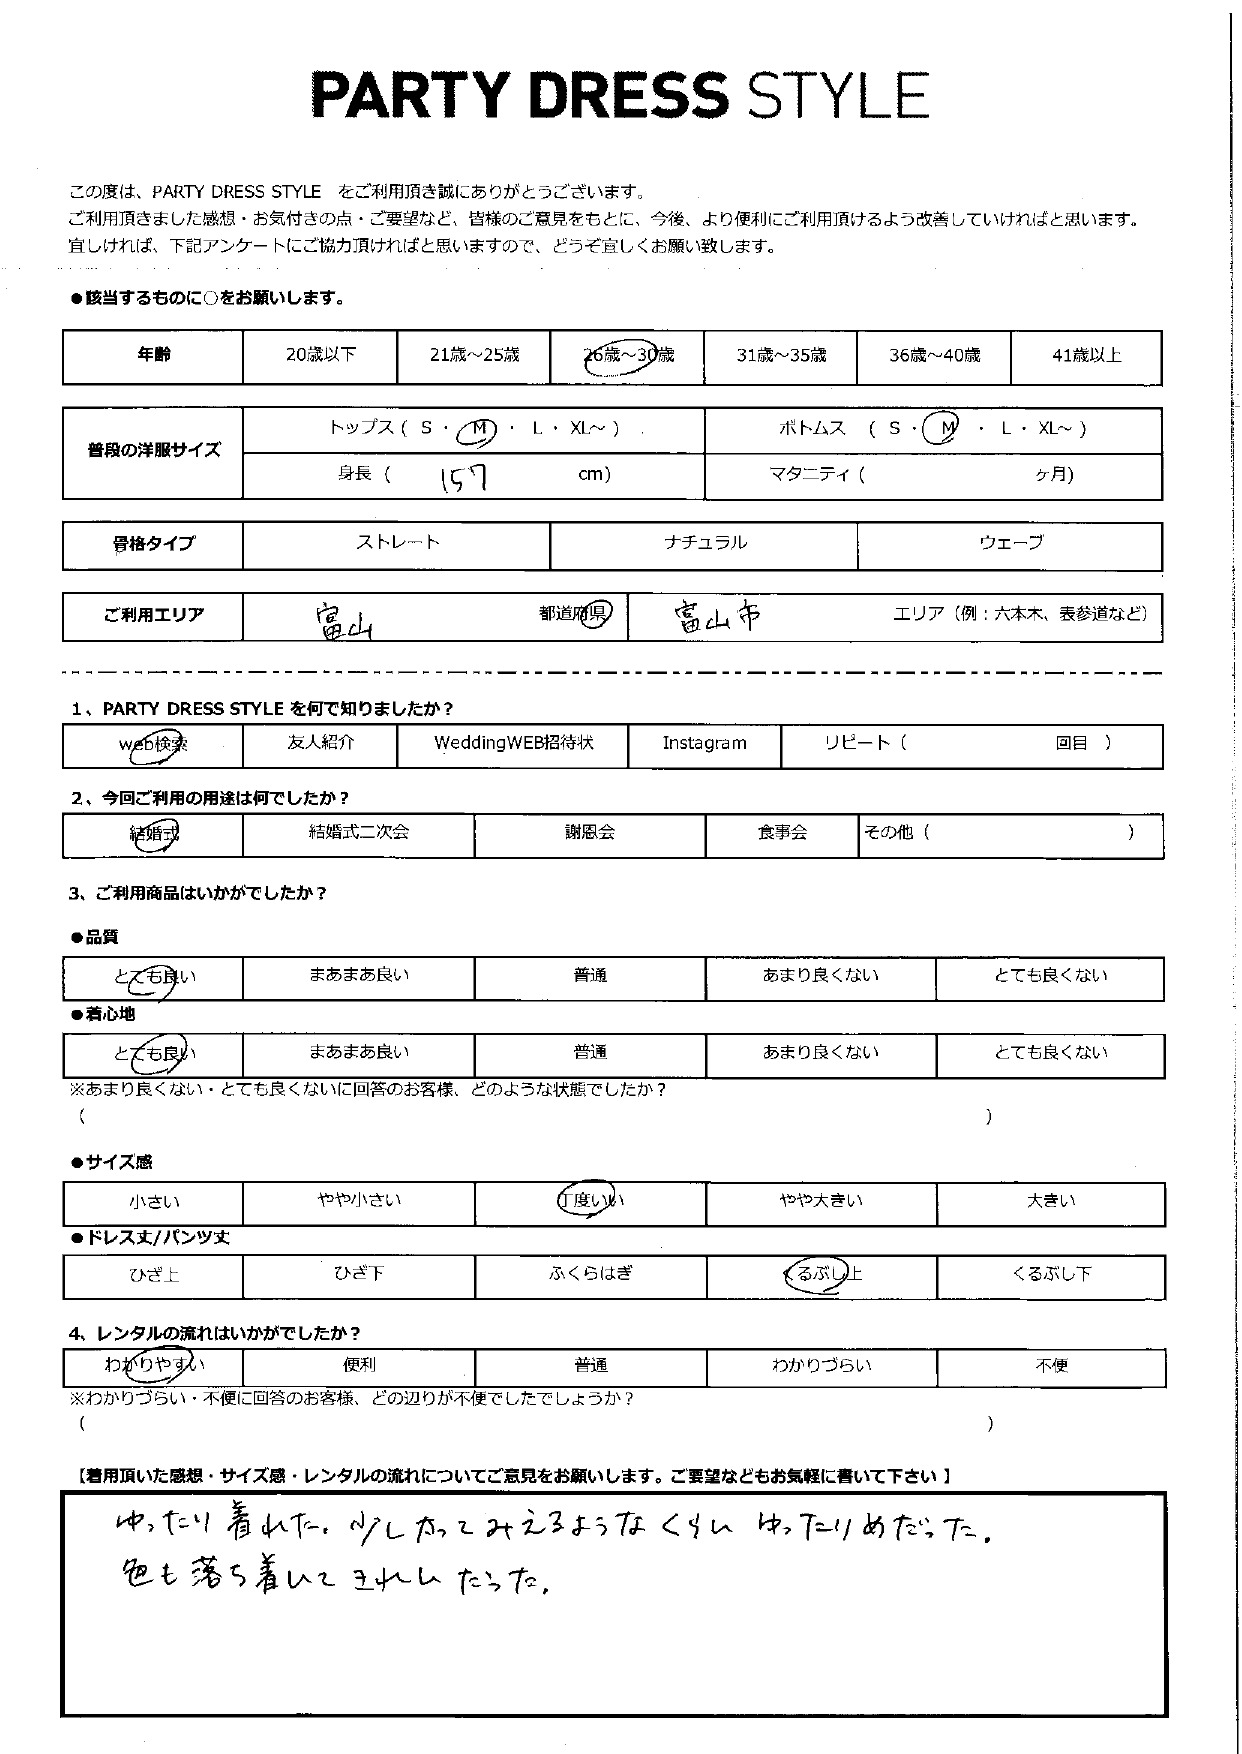 PARTY DRESS STYLE
この度は、PARTY DRESS STYLE をご利用頂き誠にありがとうございます。
ご利用頂きました感想・お気付きの点・ご要望など、皆様のご意見をもとに、今後、より便利にご利用頂けるよう改善していければと思います。
宜しければ、下記アンケートにご協力頂ければと思いますので、どうぞ宜しくお願い致します。
●該当するものに○をお願いします。
年齢 20歳以下 21歳～25歳 26歳～30歳 31歳～35歳 36歳～40歳 41歳以上
普段の洋服サイズ トップス ( S ・ M ・ L ・ XL～ ) ボトムス ( S ・ M ・ L ・ XL～ )
身長 ( 157 cm) マタニティ ( ヶ月)
骨格タイプ ストレート ナチュラル ウェーブ
ご利用エリア 富山 都道府県 富山市 エリア（例：六本木、表参道など）
1、PARTY DRESS STYLE を何で知りましたか？
web検索 友人紹介 WeddingWEB招待状 Instagram リピート ( 回目 )
2、今回ご利用の用途は何でしたか？
結婚式 結婚式二次会 謝恩会 食事会 その他 ( )
3、ご利用商品はいかがでしたか？
●品質
とても良い まあまあ良い 普通 あまり良くない とても良くない
●着心地
とても良い まあまあ良い 普通 あまり良くない とても良くない
※あまり良くない・とても良くないに回答のお客様、どのような状態でしたか？
( )
●サイズ感
小さい やや小さい 丁度いい やや大きい 大きい
●ドレス丈/パンツ丈
ひざ上 ひざ下 ふくらはぎ くるぶし上 くるぶし下
4、レンタルの流れはいかがでしたか？
わかりやすい 便利 普通 わかりづらい 不便
※わかりづらい・不便に回答のお客様、どの辺りが不便でしたでしょうか？
( )
【着用頂いた感想・サイズ感・レンタルの流れについてご意見をお願いします。ご要望などもお気軽に書いて下さい 】
ゆったり着れた。少し太ってみえるようなくらい ゆったりめだった。
色も落ち着いてきれいだった。